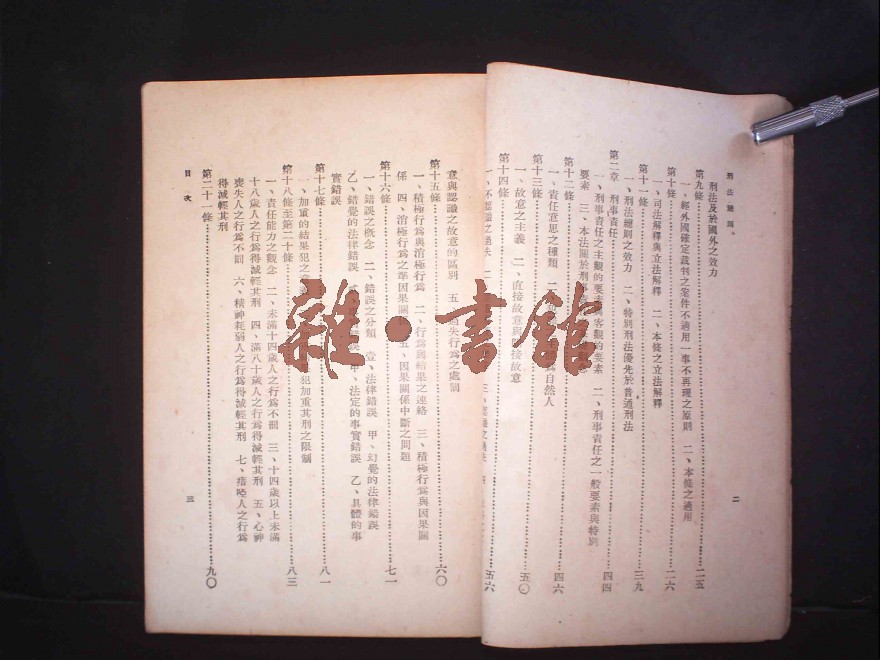 刑法總則
刑法及於國外之效力
第九條……二五
一、經外國確定裁判之案件不適用一事不再理之原則 二、本條之適用
第十條……二六
一、司法解釋與立法解釋 二、本條之立法解釋
第十一條……三九
一、刑法總則之效力 二、特別刑法優先於普通刑法
第二章 刑事責任……四四
一、刑事責任之主觀的要素與客觀的要素 二、刑事責任之一般要素與特別
要素 三、本法關於刑事
第十二條……四六
一、責任意思之種類 自然人
第十三條……五〇
一、故意之主義 二、直接故意與間接故意
第十四條……五六
一、不認識之過失
二
意與認識之故意的區別 五、過失行為之處罰
第十五條……六〇
一、積極行為與消極行為 二、行為與結果之連絡 三、積極行為與因果關
係 四、消極行為之準因果關係 五、因果關係中斷之問題
第十六條……七一
一、錯誤之概念 二、錯誤之分類 壹、法律錯誤 甲、幻覺的法律錯誤
乙、錯覺的法律錯誤 甲、法定的事實錯誤 乙、具體的事
實錯誤
第十七條……八一
一、加重的結果犯之 犯加重其刑之限制
第十八條至第二十條……八三
一、責任能力之觀念 二、未滿十四歲人之行為不罰 三、十四歲以上未滿
十八歲人之行為得減輕其刑 四、滿八十歲人之行為得減輕其刑 五、心神
喪失人之行為不罰 六、精神耗弱人之行為得減輕其刑 七、瘖啞人之行為
得減輕其刑
第二十一條……九〇
目次
三
雜·書館